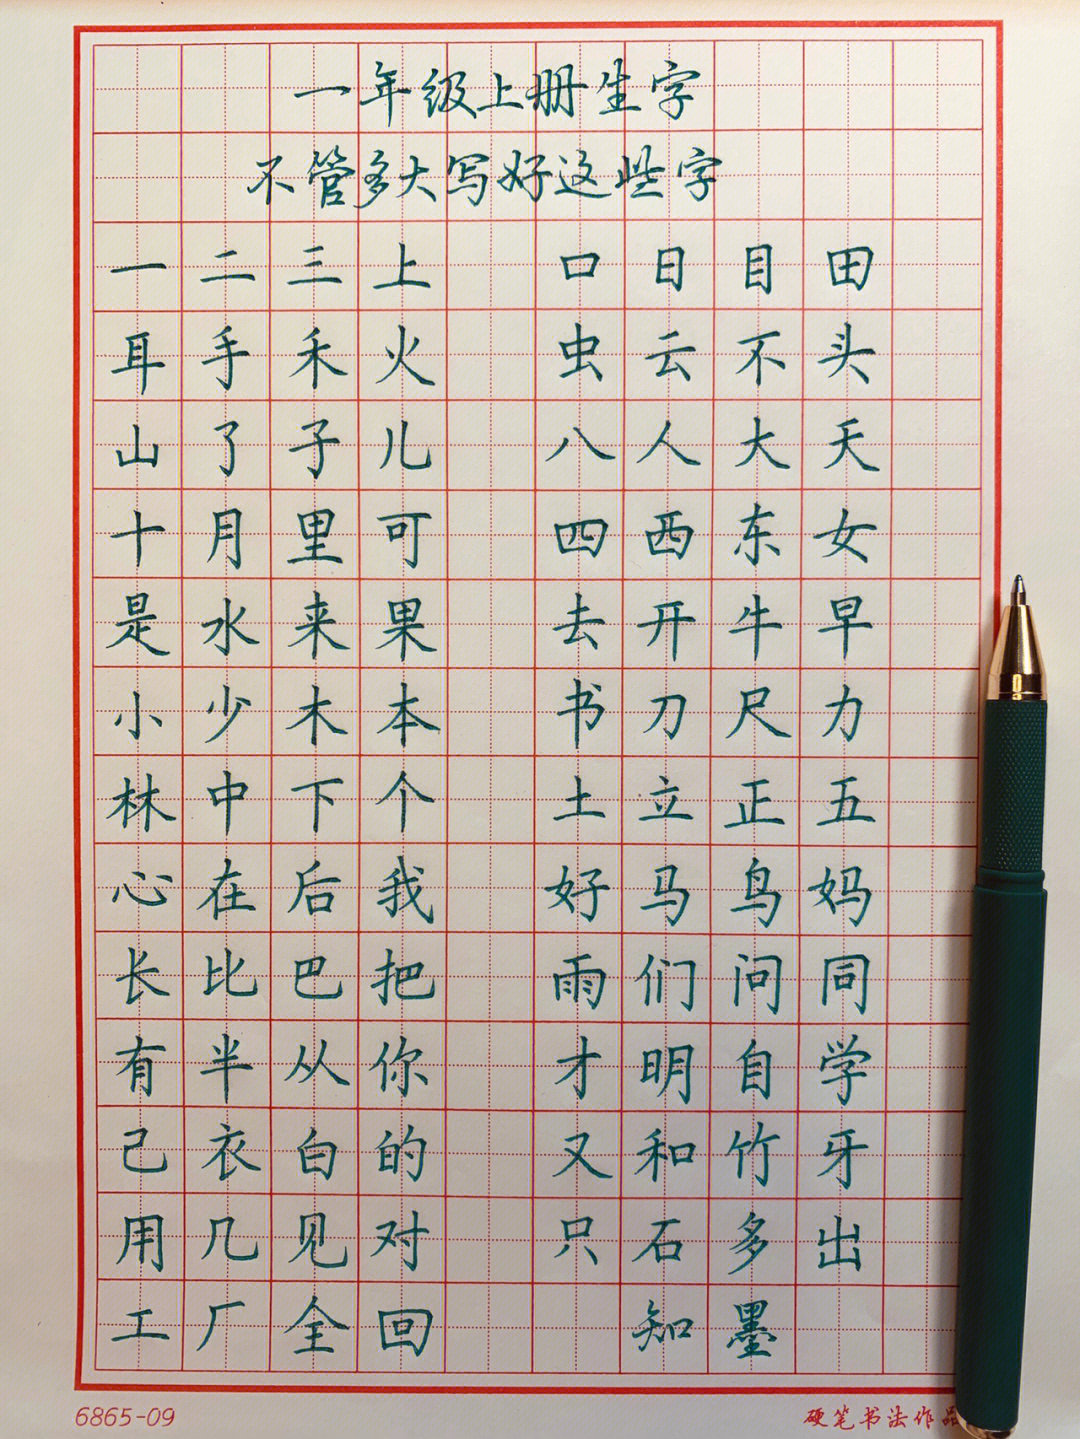 一年级上册生字
不管多大写好这些字
一二三上 口日目田
耳手禾火 虫云不头
山了子儿 八人大天
十月里可 四西东女
是水来果 去开牛早
小少木本 书刀尺力
林中下个 土立正五
心在后我 好马鸟妈
长比巴把 雨们问同
有半从你 才明自学
己衣白的 又和竹牙
用几见对 只石多出
工厂全回 知墨
6865-09 硬笔书法作品